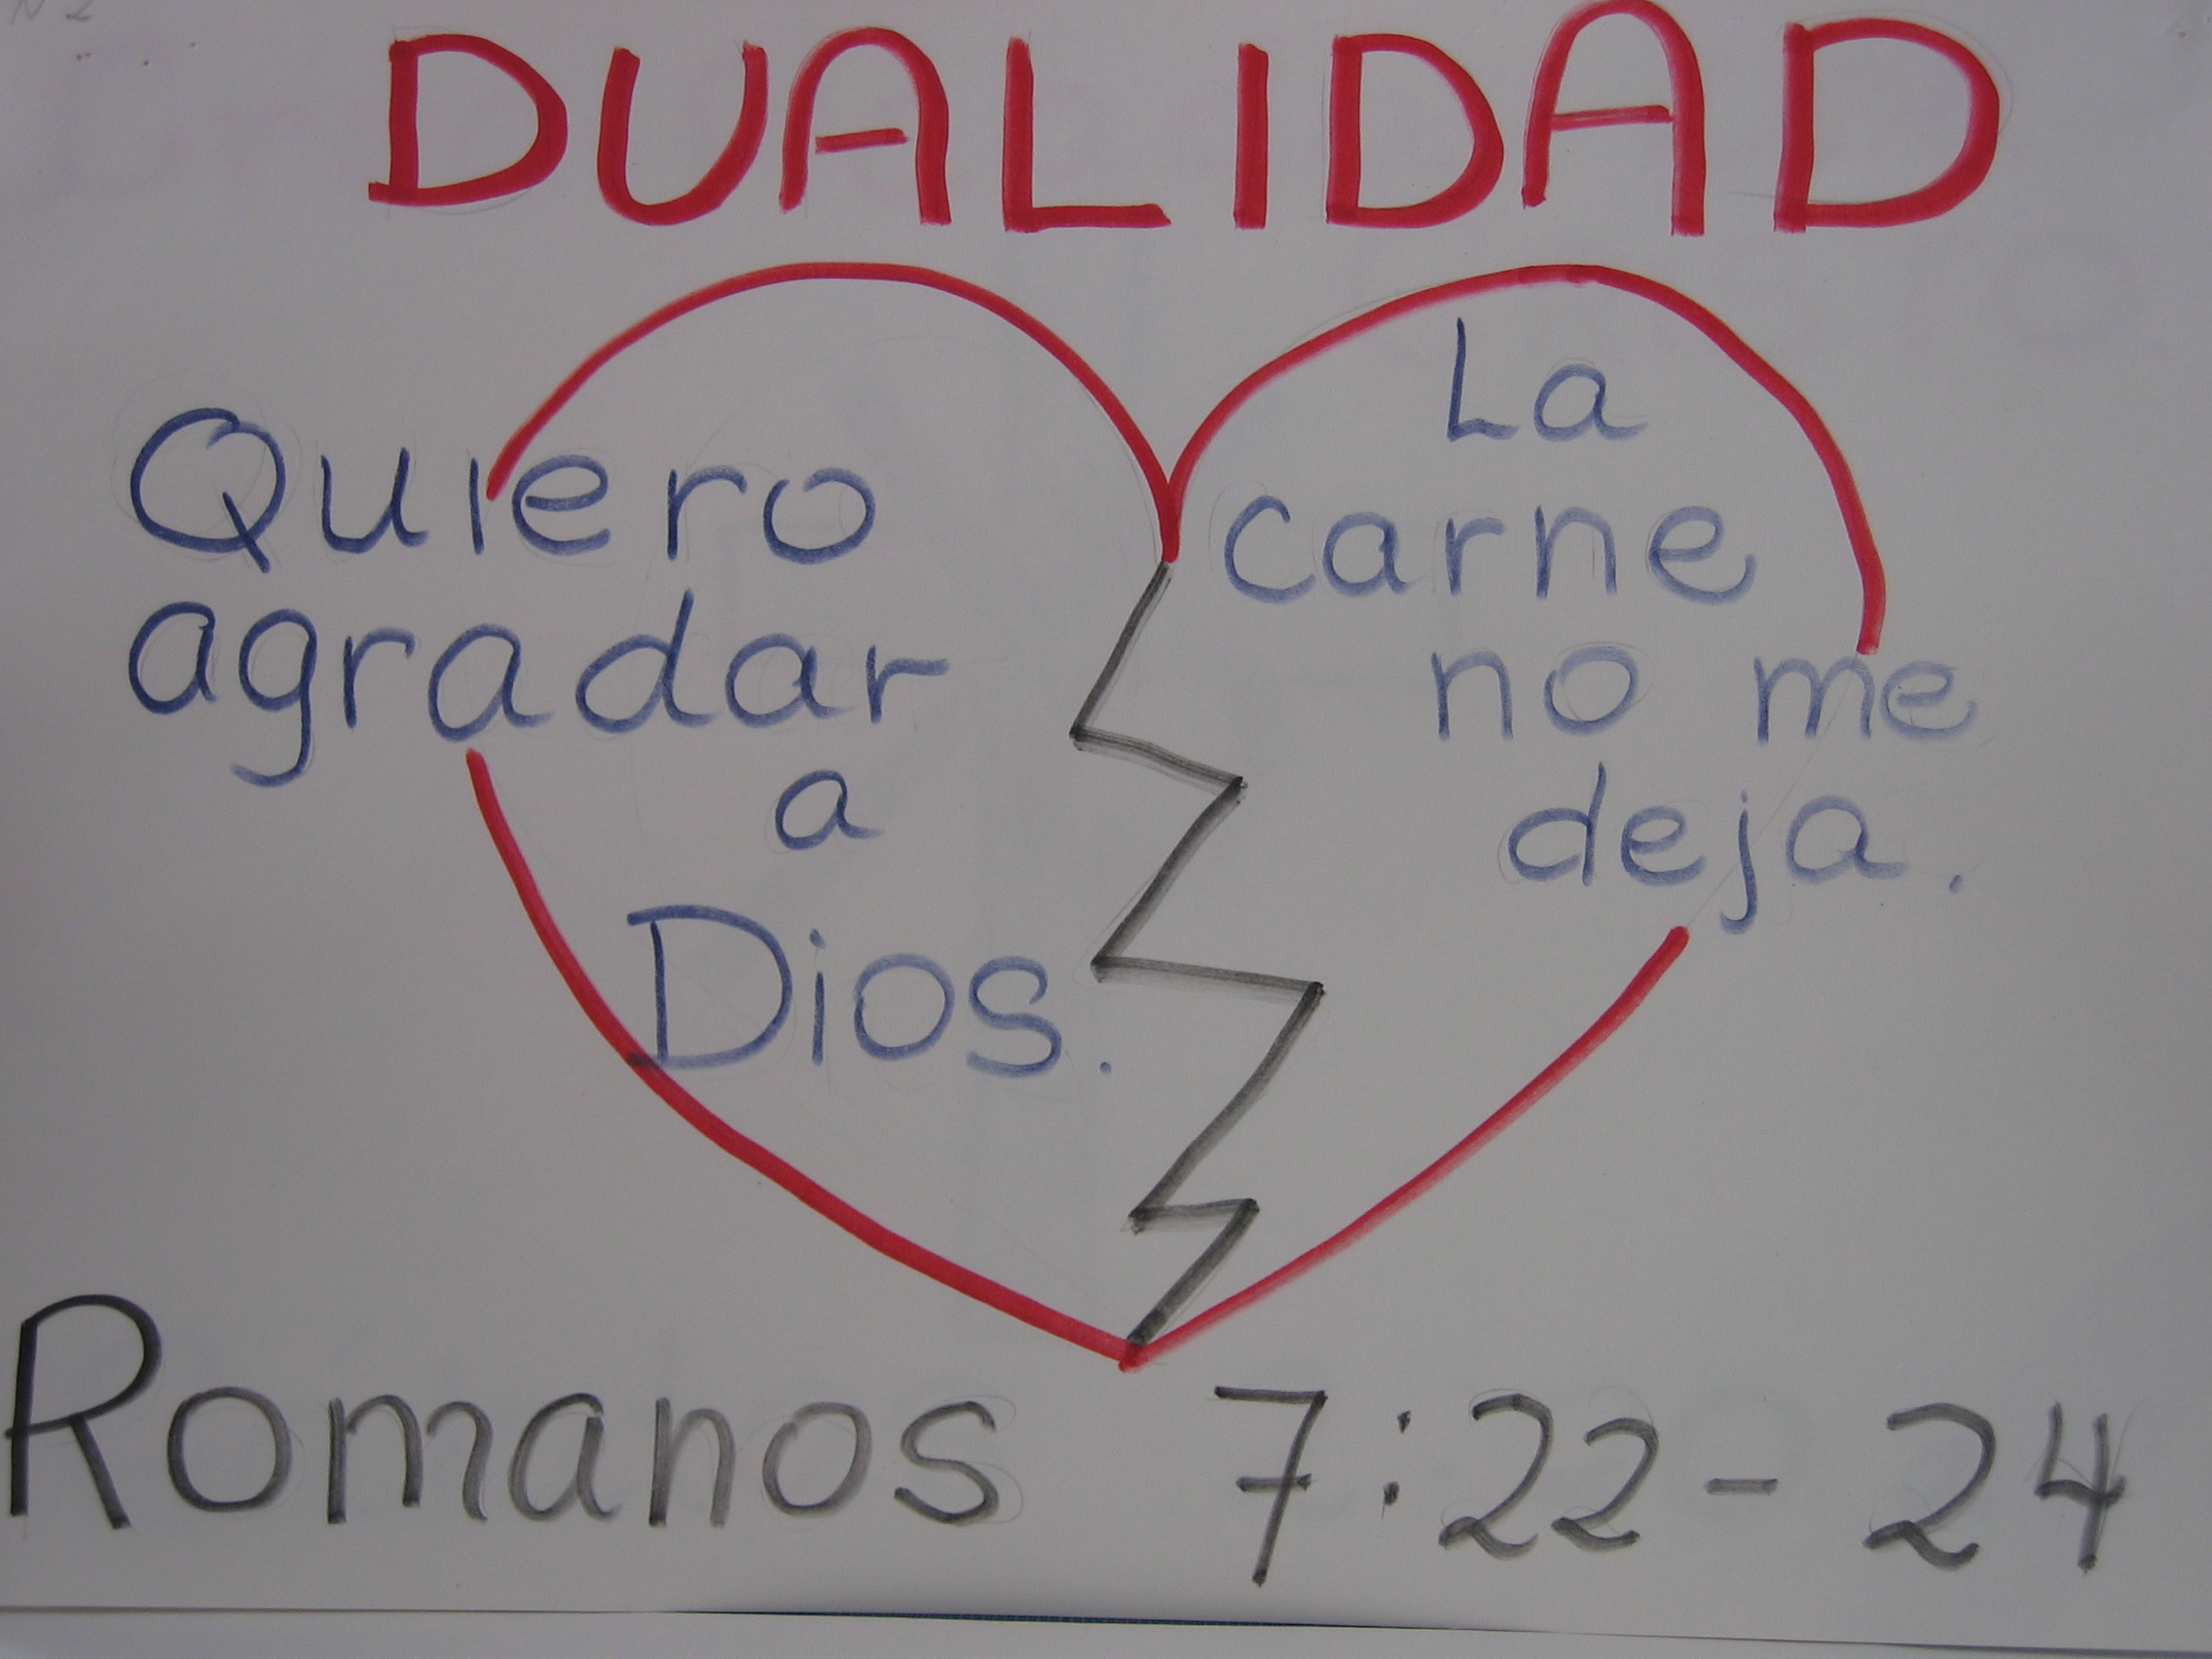 DUALIDAD
Quiero
agradar
a
Dios.
La
carne
no me
deja.
Romanos 7:22-24